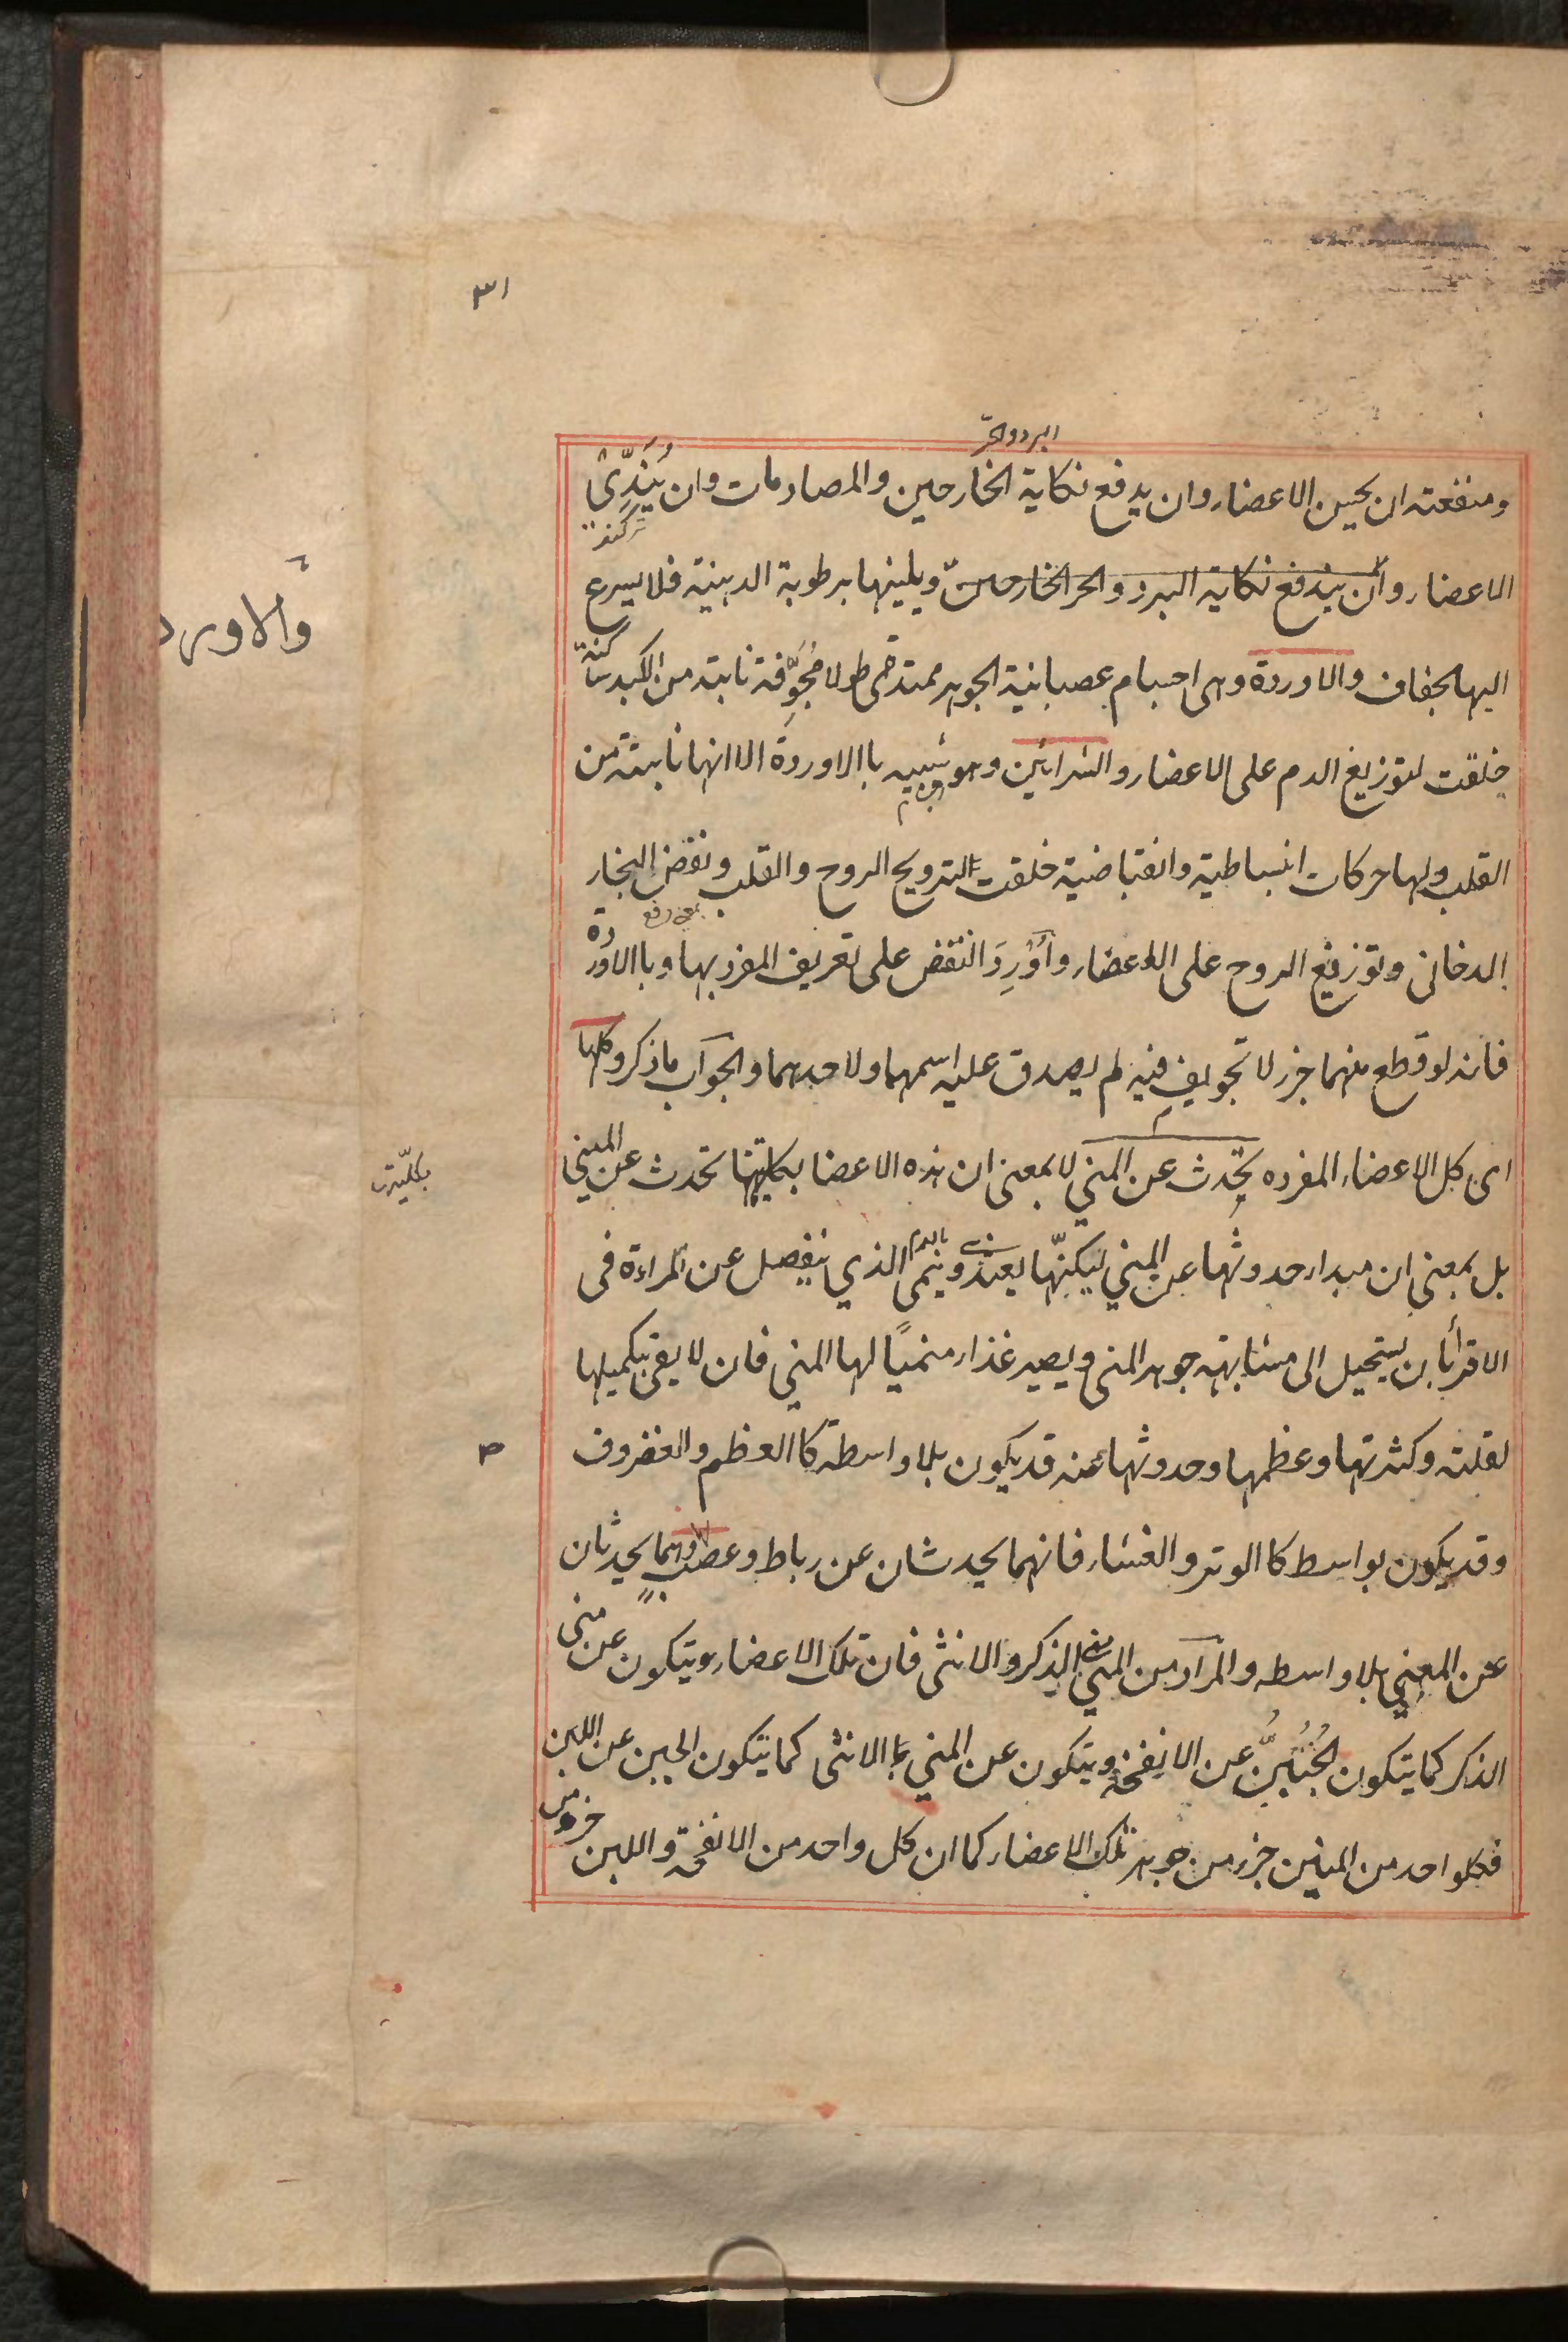 ٣١
البرد والحر
ومنفعته ان يحسن الاعضاء وان يدفع نكاية الخارجين والمصادمات وان يُنَدِّىَ
تر كند
الاعضاء وان يندفع نكاية البرد والحر الخارجين ويلينها برطوبة الدهنية فلا يسرع
والاورد
اليها الجفاف والاوردة وهى اجسام عصبانية الجوهر ممتدة طولا مُجَوَّفة نابتة من الكبد ساكنة
خلقت لتوزيع الدم على الاعضاء والشرائين وهو شبيه باالاوردة الا انها نابتة من
القلب ولها حركات انبساطية وانقباضية خلقت لترويح الروح والقلب ونفض البخار
بمعنى دفع
الدخانى وتوزيع الروح على الاعضاء وأُورِدَ النقض على تعريف المفرد بها وباالاوردة
فانه لو قطع منهما جزء لا تجويف فيه لم يصدق عليه اسمهما ولا حدهما والجواب ما ذكر وكلها
اى كل الاعضاء المفرده يحدث عن المني لا بمعنى ان هذه الاعضا بكليتها تحدث عن المني
بكليّت
بل بمعنى ان مبداء حدوثها عن المني ليكنّها يغتذى وينمى بالدم الذي ينفصل عن المراءة فى
الاقراٴ بان يستحيل الى مشابهة جوهر المنى ويصير غذاء منميًا لها المني فان لا يفى بتكميلها
لقلته وكثرتها وعظمها وحدوثها عنه قد يكون بلا واسطة كاالعظم والغضروف
وقد يكون بواسط كاالوتر والغشاء فانهما يحدثان عن رباط وعصب وهما يحدثان
عن المني بلا واسطه والمراد من المني منى الذكر والانثى فان تلك الاعضاء يتكون عن منى
الذكر كما يتكون الجُبُنُّ عن الانفخة ويتكون عن المني الانثى كما يتكون الجبن عن اللبن
فكلواحد من المنيين جزء من جوهر تلك الاعضاء كما ان كل واحد من الانفحة واللبن جزء من